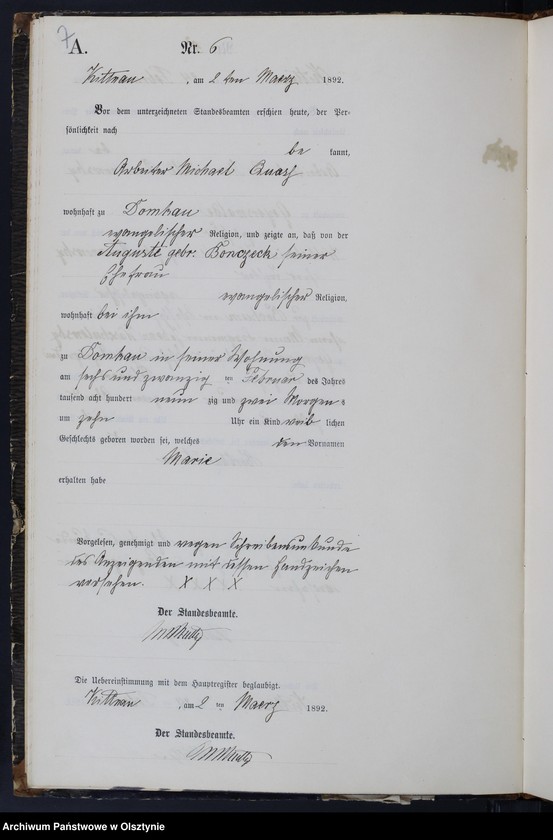 7
A.
Nr. 6
Kittnau, am 2 ten Maerz 1892.
Vor dem unterzeichneten Standesbeamten erschien heute, der Per-
sönlichkeit nach
be kannt,
Arbeiter Michael Quass
wohnhaft zu Domkau
evangelischer Religion, und zeigte an, daß von der
Auguste geb. Bonczeck seiner
Ehefrau
evangelischer Religion,
wohnhaft bei ihm
zu Domkau in seiner Wohnung
am sechs und zwanzig ten Februar des Jahres
tausend acht hundert neun zig und zwei Morgens
um zehn Uhr ein Kind weib lichen
Geschlechts geboren worden sei, welches den Vornamen
Marie
erhalten habe
Vorgelesen, genehmigt und wegen Schreibensunkunde
des Anzeigenden mit dessen Handzeichen
versehen. X X X
Der Standesbeamte.
Die Uebereinstimmung mit dem Hauptregister beglaubigt.
Kittnau, am 2 ten Maerz 1892.
Der Standesbeamte.
Archiwum Państwowe w Olsztynie